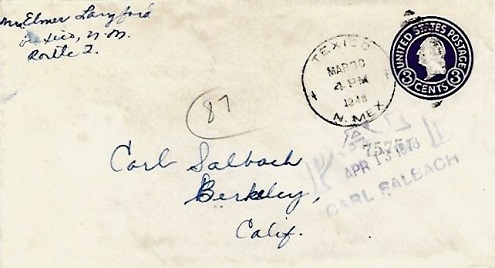 Mr Elmer Langford
Texico, N.M.
Route 2.
TEXICO
MAR 30
4-PM
N. MEX.
UNITED STATES POSTAGE
3 3
CENTS
87
7575
APR 13
CARL SALBACH
Carl Salbach
Berkeley,
Calif.